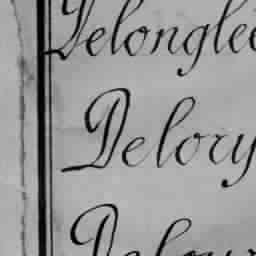 Delonglee
Delory
Delour